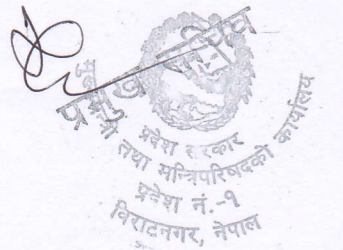 प्रमुख सचिव
प्रदेश सरकार
मुख्यमन्त्री तथा मन्त्रिपरिषदको कार्यालय
प्रदेश नं.-१
विराटनगर, नेपाल